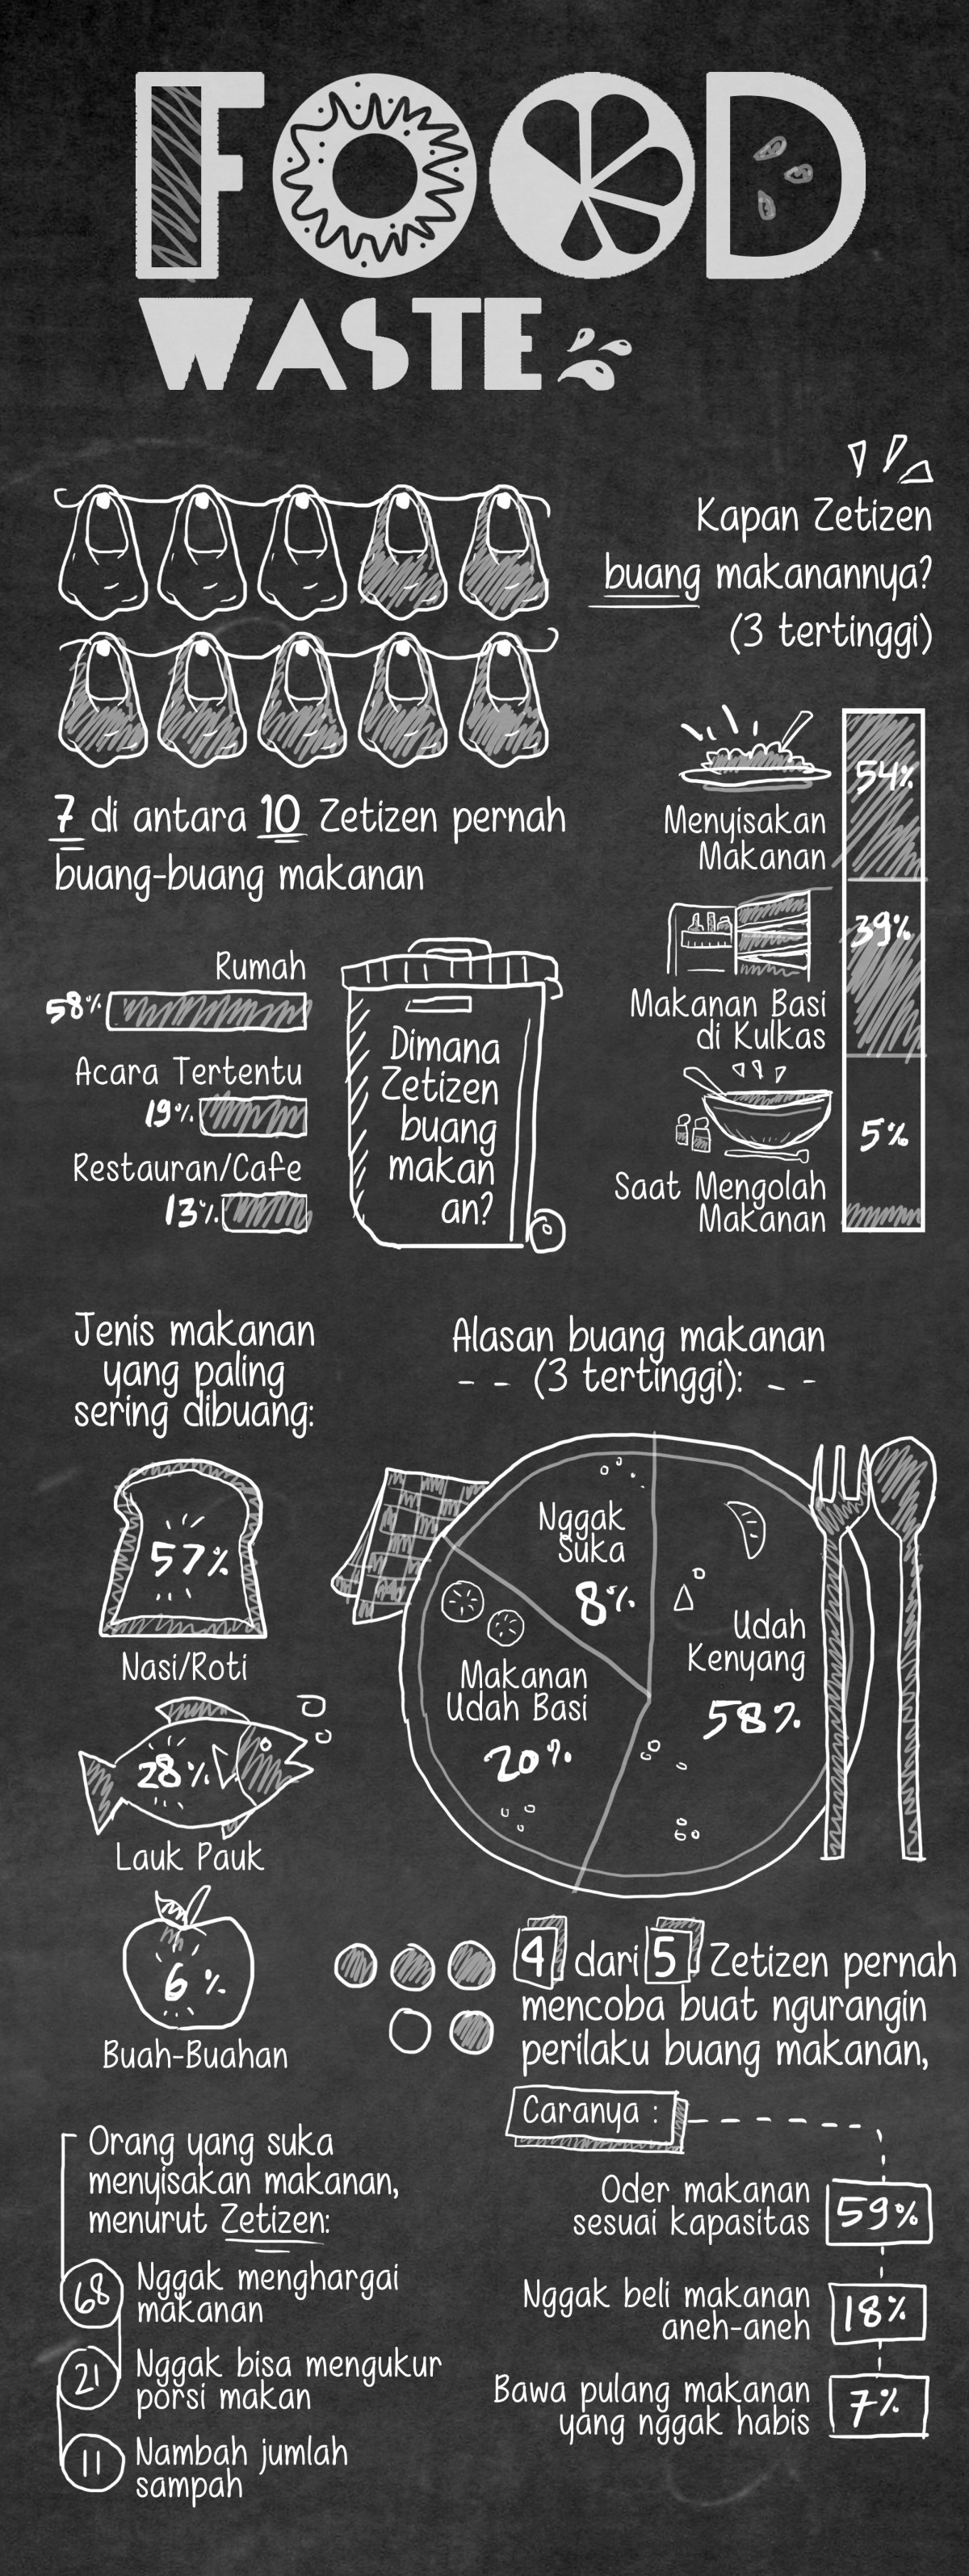 FOOD
WASTE
Kapan Zetizen
buang makanannya?
(3 tertinggi)
7 di antara 10 Zetizen pernah
buang-buang makanan
54%
Menyisakan
Makanan
39%
Makanan Basi
di Kulkas
5%
Saat Mengolah
Makanan
Rumah
58%
Acara Tertentu
19%
Restauran/Cafe
13%
Dimana
Zetizen
buang
makan
an?
Jenis makanan
yang paling
sering dibuang:
57%
Nasi/Roti
28%
Lauk Pauk
6%
Buah-Buahan
Alasan buang makanan
-- (3 tertinggi): --
Nggak
Suka
8%
Udah
Kenyang
58%
Makanan
Udah Basi
20%
4 dari 5 Zetizen pernah
mencoba buat ngurangin
perilaku buang makanan,
Caranya :
Oder makanan
sesuai kapasitas
59%
Nggak beli makanan
aneh-aneh
18%
Bawa pulang makanan
yang nggak habis
7%
Orang yang suka
menyisakan makanan,
menurut Zetizen:
68
Nggak menghargai
makanan
21
Nggak bisa mengukur
porsi makan
11
Nambah jumlah
sampah